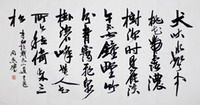 犬吠水聲中
桃花帶露濃
樹深時見鹿溪
午不聞鐘野竹
分青靄飛泉
掛碧峰無人知
所去愁倚兩三
松